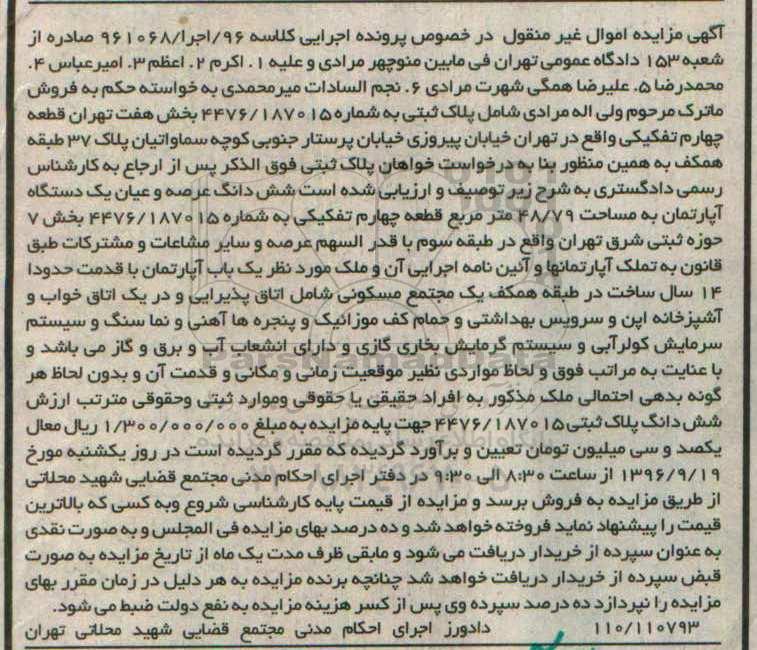 آگهی مزایده اموال غیر منقول در خصوص پرونده اجرایی کلاسه ۹۶/اجرا/۹۶۱۰۶۸ صادره از
شعبه ۱۵۳ دادگاه عمومی تهران فی مابین منوچهر مرادی و علیه ۱. اکرم ۲. اعظم ۳. امیرعباس ۴.
محمدرضا ۵. علیرضا همگی شهرت مرادی ۶. نجم السادات میرمحمدی به خواسته حکم به فروش
ماترک مرحوم ولی اله مرادی شامل پلاک ثبتی به شماره ۴۴۷۶/۱۸۷۰۱۵ بخش هفت تهران قطعه
چهارم تفکیکی واقع در تهران خیابان پیروزی خیابان پرستار جنوبی کوچه سماواتیان پلاک ۳۷ طبقه
همکف به همین منظور بنا به درخواست خواهان پلاک ثبتی فوق الذکر پس از ارجاع به کارشناس
رسمی دادگستری به شرح زیر توصیف و ارزیابی شده است شش دانگ عرصه و عیان یک دستگاه
آپارتمان به مساحت ۴۸/۷۹ متر مربع قطعه چهارم تفکیکی به شماره ۴۴۷۶/۱۸۷۰۱۵ بخش ۷
حوزه ثبتی شرق تهران واقع در طبقه سوم با قدر السهم عرصه و سایر مشاعات و مشترکات طبق
قانون به تملک آپارتمانها و آئین نامه اجرایی آن و ملک مورد نظر یک باب آپارتمان با قدمت حدودا
۱۴ سال ساخت در طبقه همکف یک مجتمع مسکونی شامل اتاق پذیرایی و در یک اتاق خواب و
آشپزخانه اپن و سرویس بهداشتی و حمام کف موزائیک و پنجره ها آهنی و نما سنگ و سیستم
سرمایش کولرآبی و سیستم گرمایش بخاری گازی و دارای انشعاب آب و برق و گاز می باشد و
با عنایت به مراتب فوق و لحاظ مواردی نظیر موقعیت زمانی و مکانی و قدمت آن و بدون لحاظ هر
گونه بدهی احتمالی ملک مذکور به افراد حقیقی یا حقوقی وموارد ثبتی وحقوقی مترتب ارزش
شش دانگ پلاک ثبتی ۴۴۷۶/۱۸۷۰۱۵ جهت پایه مزایده به مبلغ ۱/۳۰۰/۰۰۰/۰۰۰ ریال معال
یکصد و سی میلیون تومان تعیین و برآورد گردیده که مقرر گردیده است در روز یکشنبه مورخ
۱۳۹۶/۹/۱۹ از ساعت ۸:۳۰ الی ۹:۳۰ در دفتر اجرای احکام مدنی مجتمع قضایی شهید محلاتی
از طریق مزایده به فروش برسد و مزایده از قیمت پایه کارشناسی شروع وبه کسی که بالاترین
قیمت را پیشنهاد نماید فروخته خواهد شد و ده درصد بهای مزایده فی المجلس و به صورت نقدی
به عنوان سپرده از خریدار دریافت می شود و مابقی ظرف مدت یک ماه از تاریخ مزایده به صورت
قبض سپرده از خریدار دریافت خواهد شد چنانچه برنده مزایده به هر دلیل در زمان مقرر بهای
مزایده را نپردازد ده درصد سپرده وی پس از کسر هزینه مزایده به نفع دولت ضبط می شود.
۱۱۰/۱۱۰۷۹۳ دادورز اجرای احکام مدنی مجتمع قضایی شهید محلاتی تهران
ParsNamadData